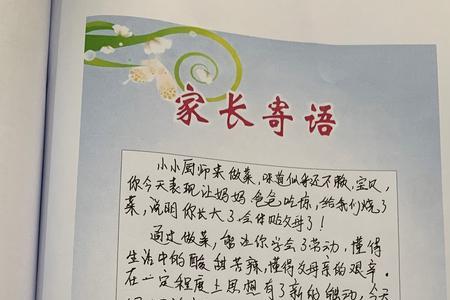 家长寄语
小小厨师来做菜,味道似乎还不赖,宝贝,
你今天表现让妈妈爸爸吃惊,给我们烧了
菜,说明你长大了会体贴父母了!
通过做菜,你学会了劳动,懂得
生活中的酸甜苦辣,懂得父母亲的艰辛。
在一定程度上思想有了新的
今天